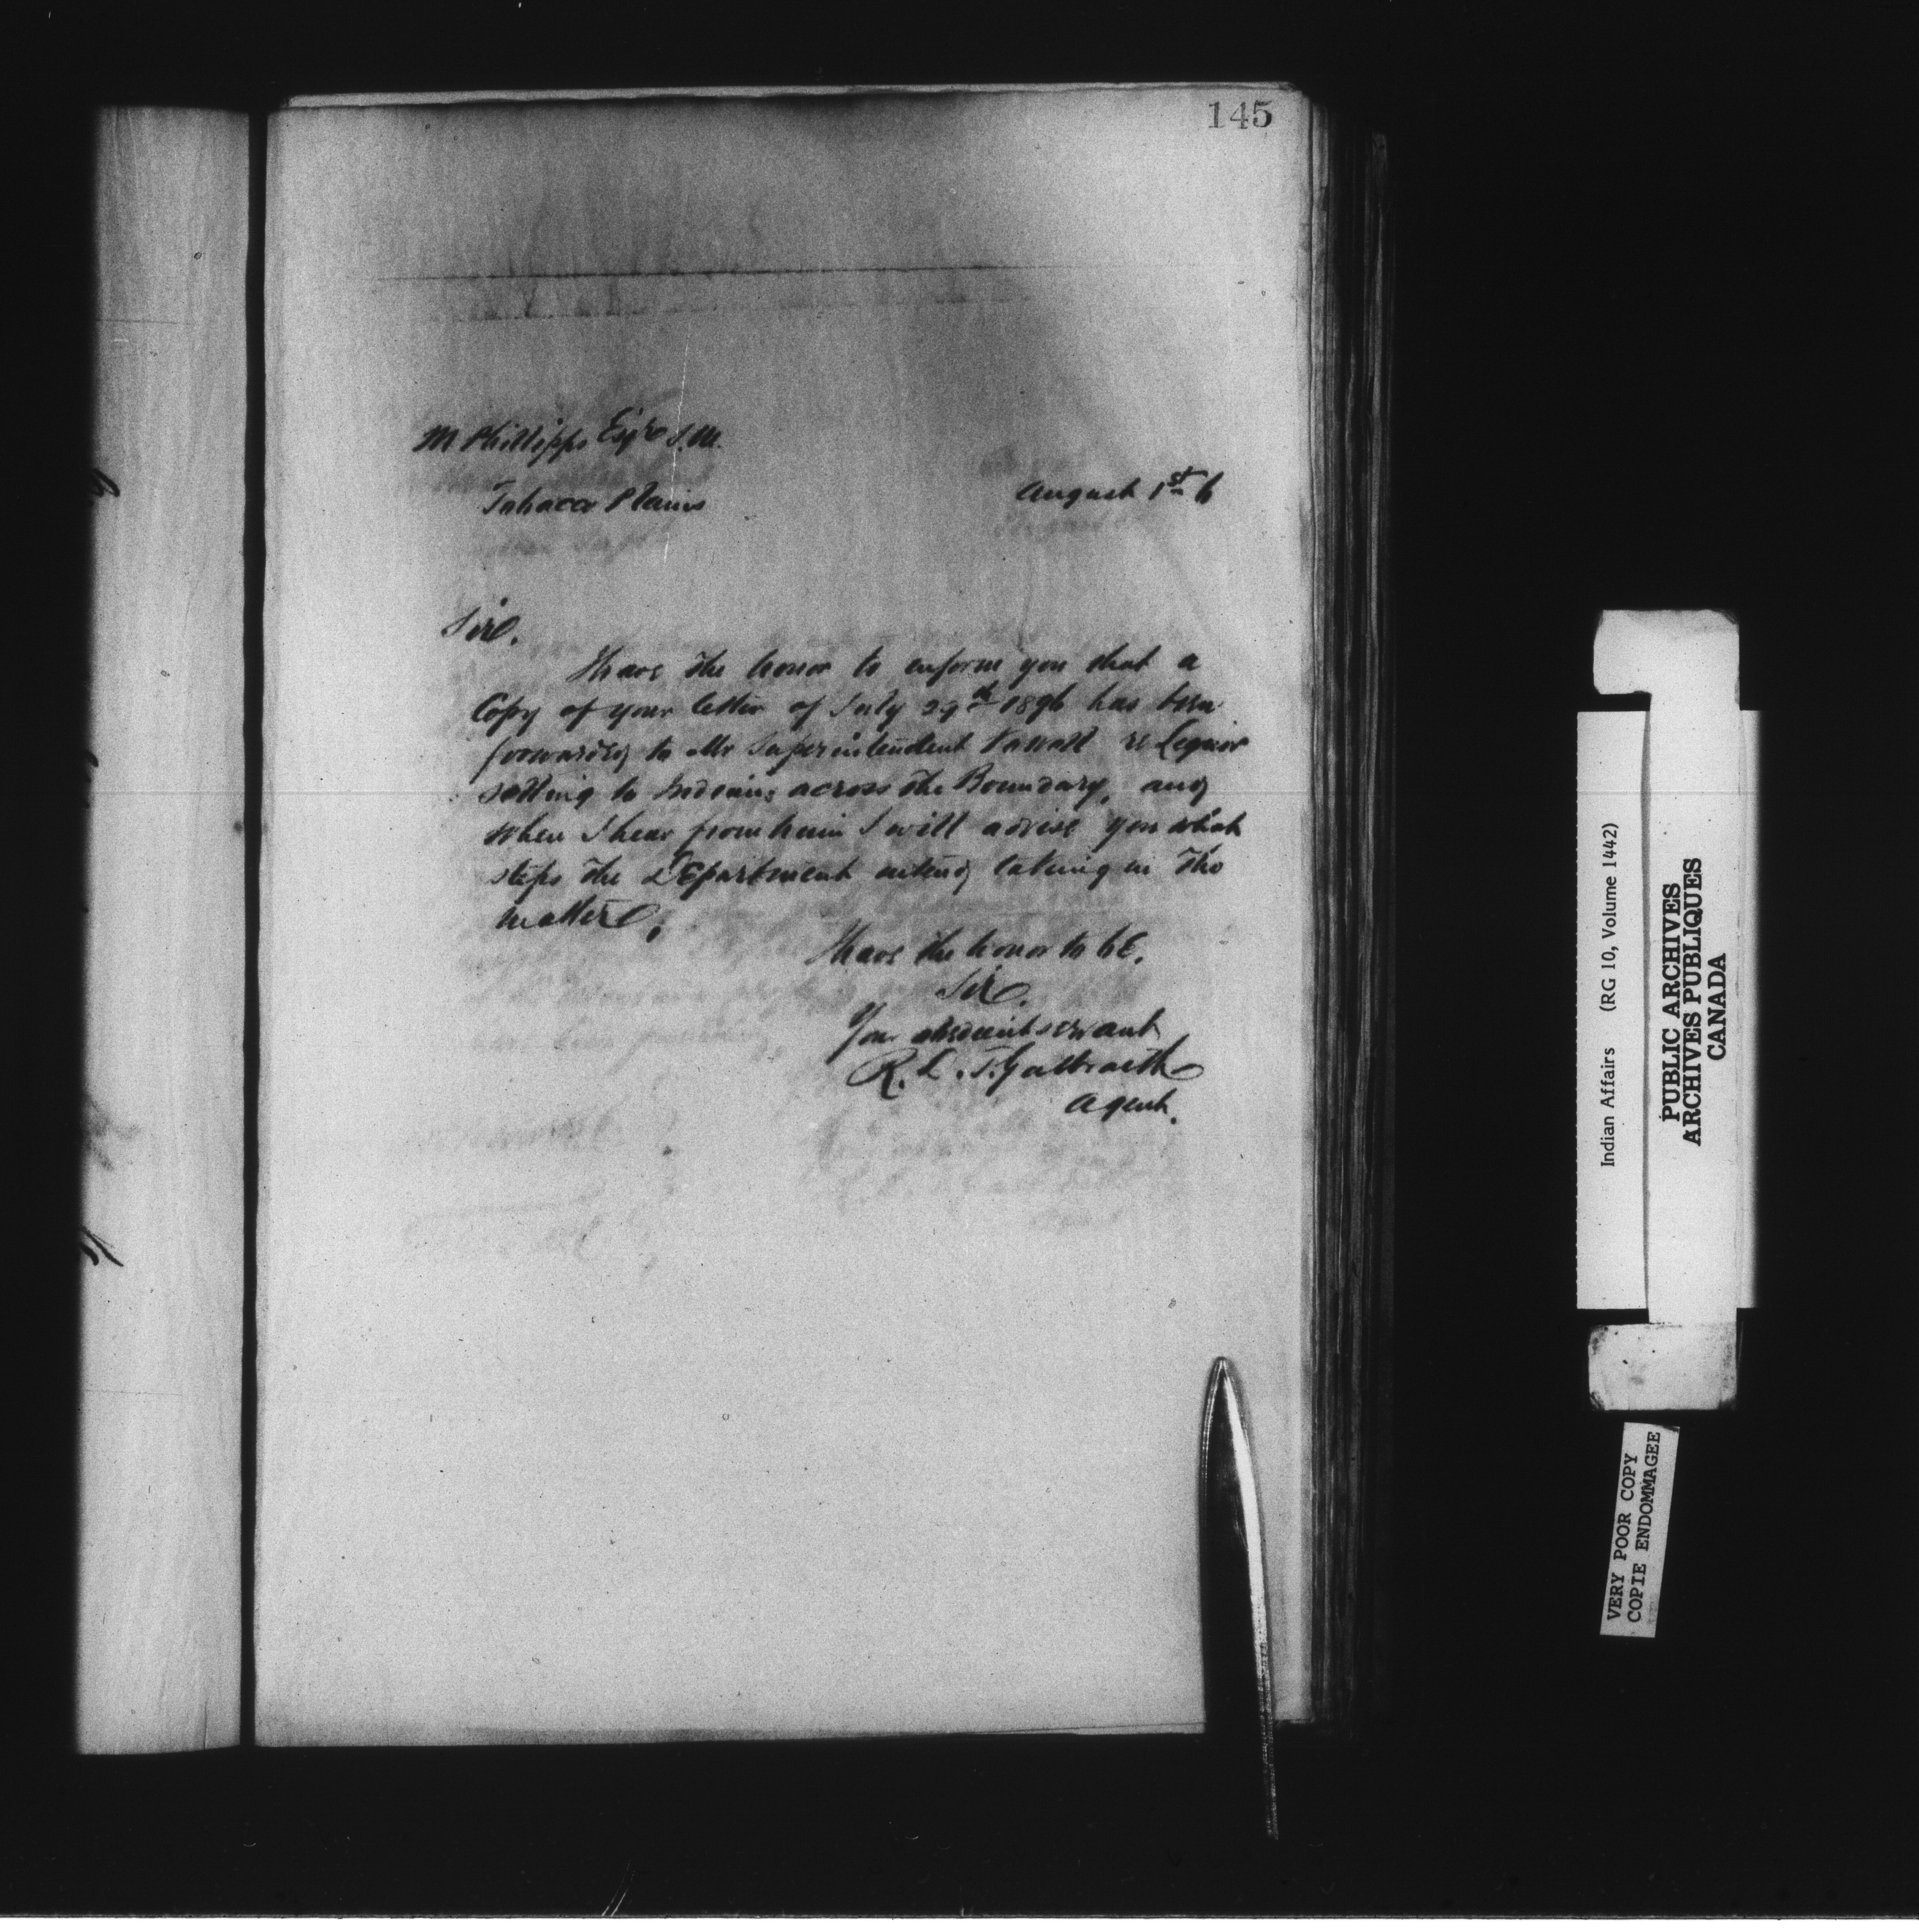 145
M Phillipps Esqre J.M.
Tobacco Plains
August 1st 6
Sir.
I have the honor to inform you that a
Copy of your letter of July 29th 1896 has been
forwarded to Mr Superintendent Vowell re Liquor
selling to Indians across the Boundary, and
when I hear from him I will advise you what
steps the Department intend taking in the
matter.
I have the honor to be.
Sir.
Your obedient servant
R. L. T. Galbraith
Agent.
Indian Affairs (RG 10, Volume 1442)
PUBLIC ARCHIVES
ARCHIVES PUBLIQUES
CANADA
VERY POOR COPY
COPIE ENDOMMAGEE